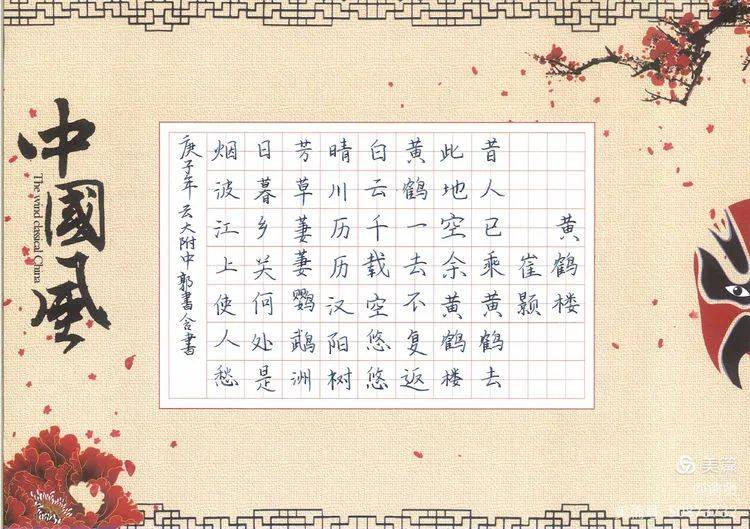 黄鹤楼
崔颢
昔人已乘黄鹤去
此地空余黄鹤楼
黄鹤一去不复返
白云千载空悠悠
晴川历历汉阳树
芳草萋萋鹦鹉洲
日暮乡关何处是
烟波江上使人愁
庚子年 云大附中 郭書含書
中國風
The wind classical China
美篇